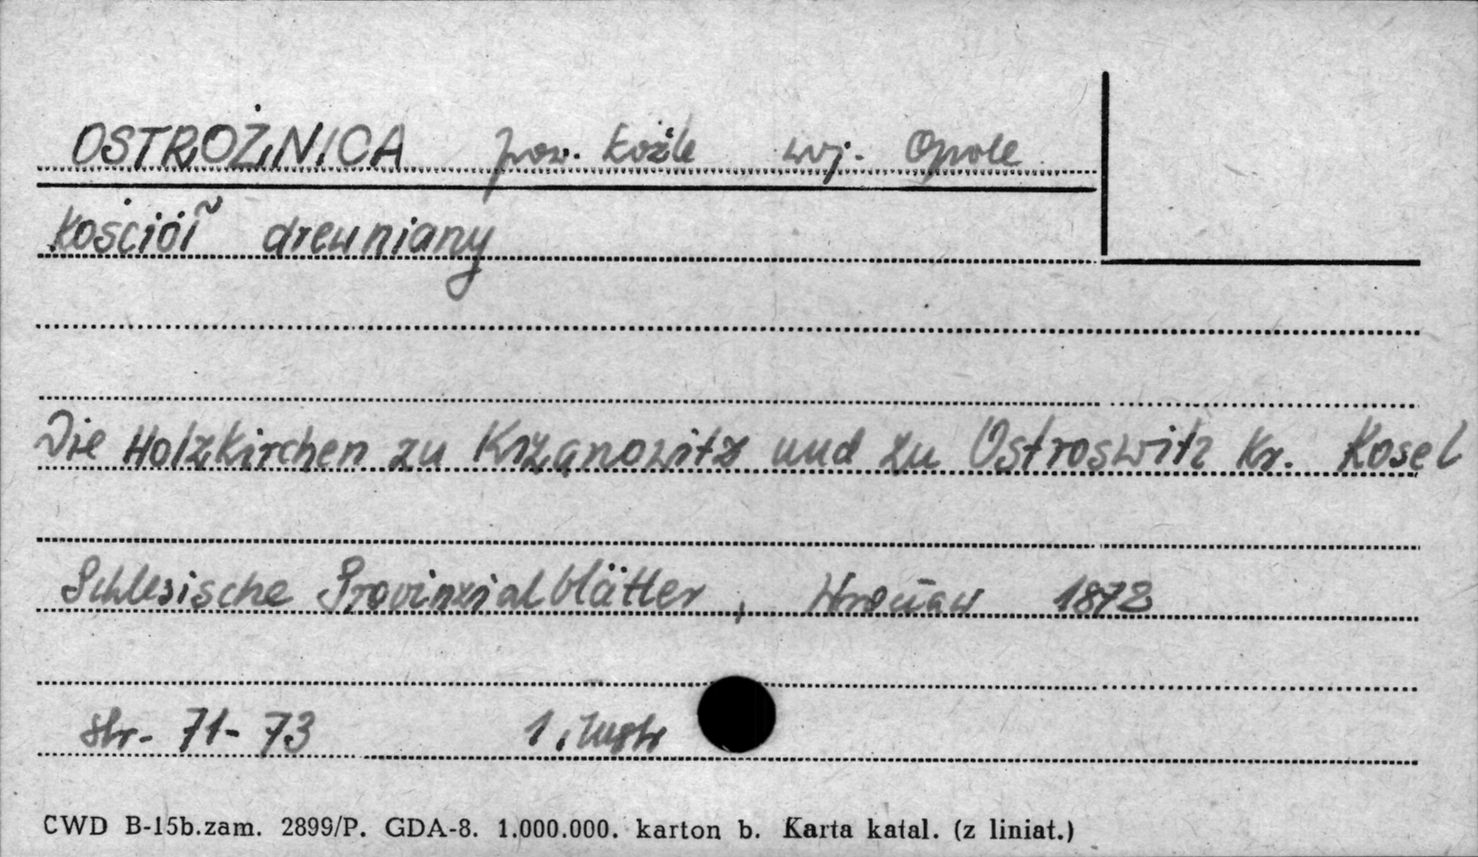 OSTROŻNICA pow. Koźle woj. Opole
Kościół drewniany
Die Holzkirchen zu Krzanowitz und zu Ostroswitz Kr. Kosel
Schlesische Provinzialblätter, Wrocław 1872
str. 71-73 1 ilustr
CWD B-15b.zam. 2899/P. GDA-8. 1.000.000. karton b. Karta katal. (z liniat.)